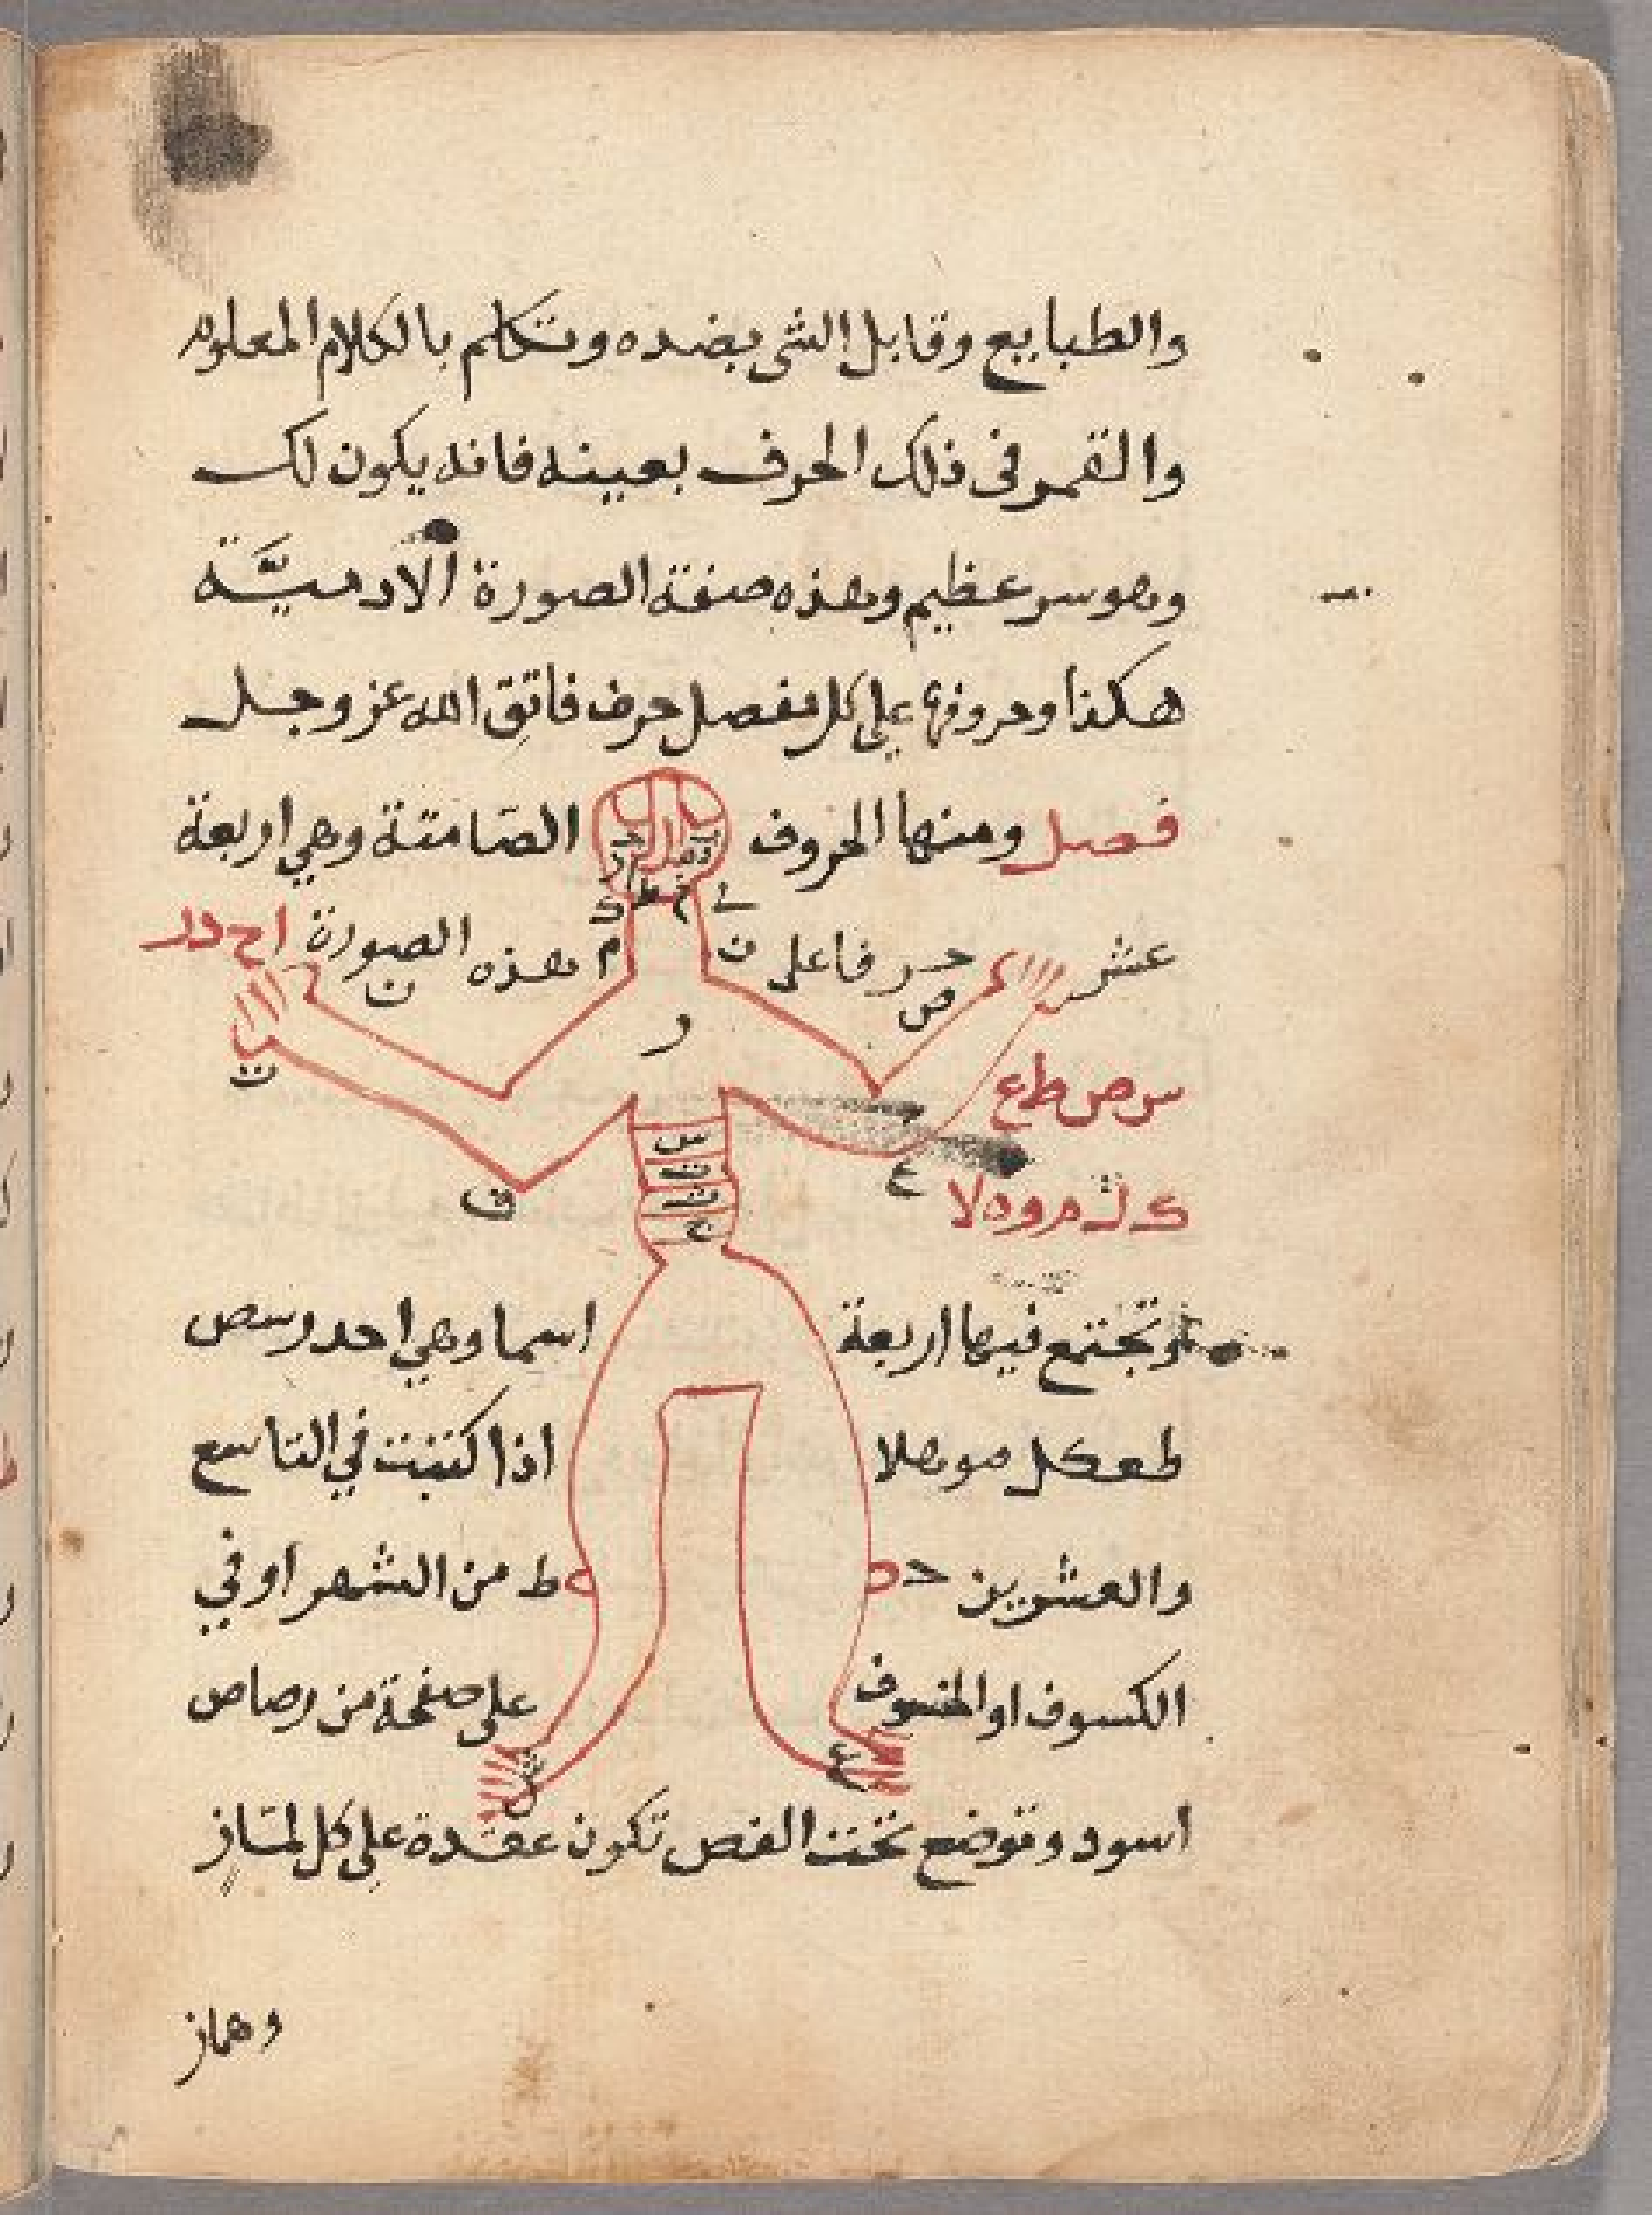 والطبايع وقابل الشى بضده وتكلم بالكلام المعلوم
والقمر فى ذلك الحرف بعينه فانه يكون لك
وهو سر عظيم وهذه صفة الصورة الادميَّة
هكذا وحروفها على كل مفصل حرف فاتق الله عز وجل
فصل ومنها الحروف الصامتة وهي اربعة
عشر حرفا على هذه الصورة ا ح د ر
س ص ط ع
ك ل م و ه لا
وتجتمع فيها اربعة اسما وهي احدرسص
طعكل موهلا اذا كتبت في التاسع
والعشرين من الشهر او في
الكسوف او الخسوف على صفحة من رصاص
اسود وتوضع تحت الفص تكون عقدة على كل لماز
وهماز
ن
م
ص
ن
ر
ت
س
ج
ع
ق
ح
ط
ع
ش